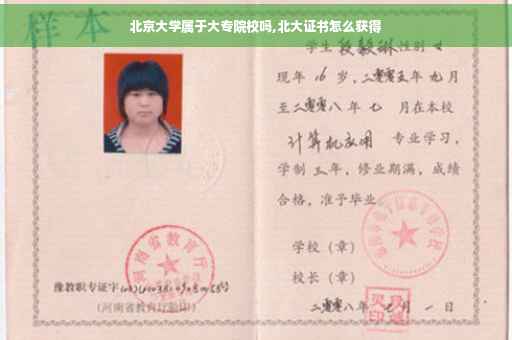 北京大学属于大专院校吗,北大证书怎么获得
样本
学生段毅琳性别 女
现年 16 岁,二零零五年 九 月
至二零零八 年 七 月在本校
计算机应用 专业学习,
学制 三 年,修业期满,成绩
合格,准予毕业
学校(章)
校长(章)
豫教职专证字
(河南省教育厅验印)
二零零八年 七 月 一 日
河南省教育厅